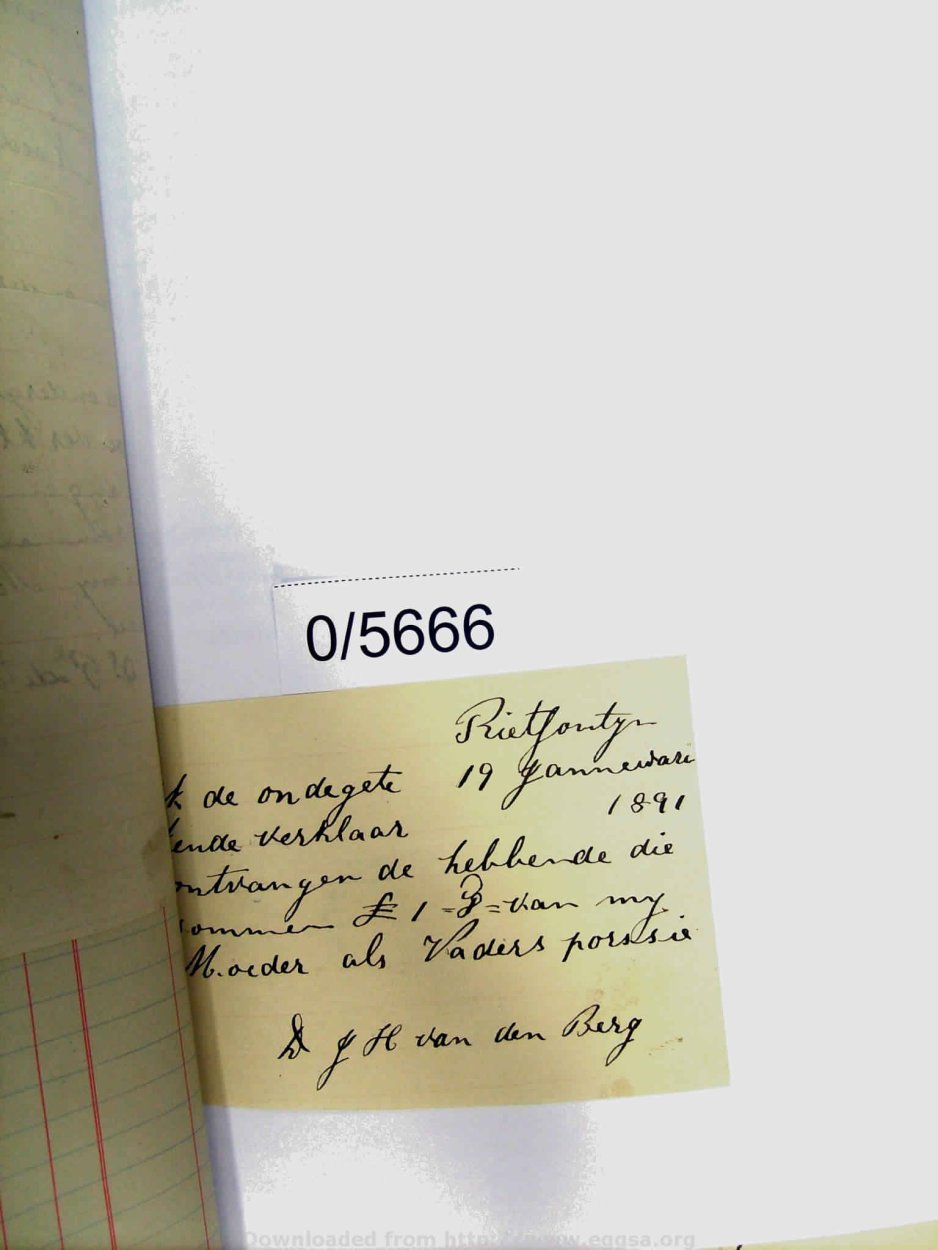 0/5666
Rietfontyn
19 Jannewari
1891
k de ondegete
ende verklaar
ontvangen de hebbende die
sommen £ 1 = = van my
Moeder als Vaders porssie
D J H van den Berg
Downloaded from http://www.eggsa.org